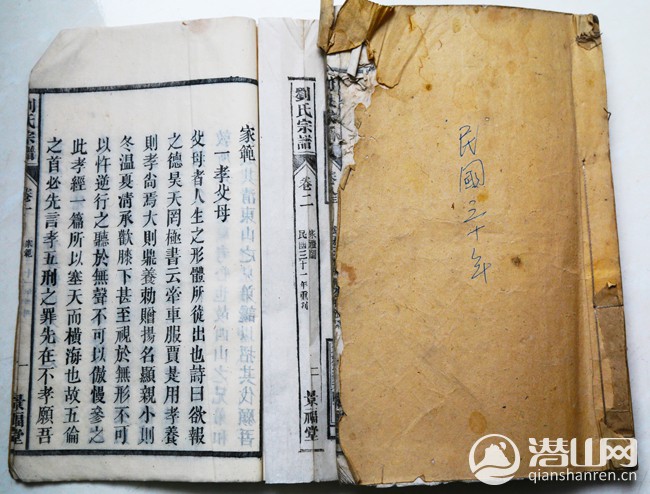 民國三十年
劉氏宗譜
卷二
民國三十一年重刊
一
景福堂
家範
一孝父母
父母者人生之形體所從出也詩曰欲報
之德昊天罔極書云牽車服賈是用孝養
則孝尚焉大則鼎養勅贈揚名顯親小則
冬温夏凊承歡膝下甚至視於無形不可
以忤逆行之聽於無聲不可以傲慢參之
此孝經一篇所以塞天而橫海也故五倫
之首必先言孝五刑之罪先在不孝願吾
劉氏宗譜
家範
一
景福堂
潜山网
qianshanren.cn